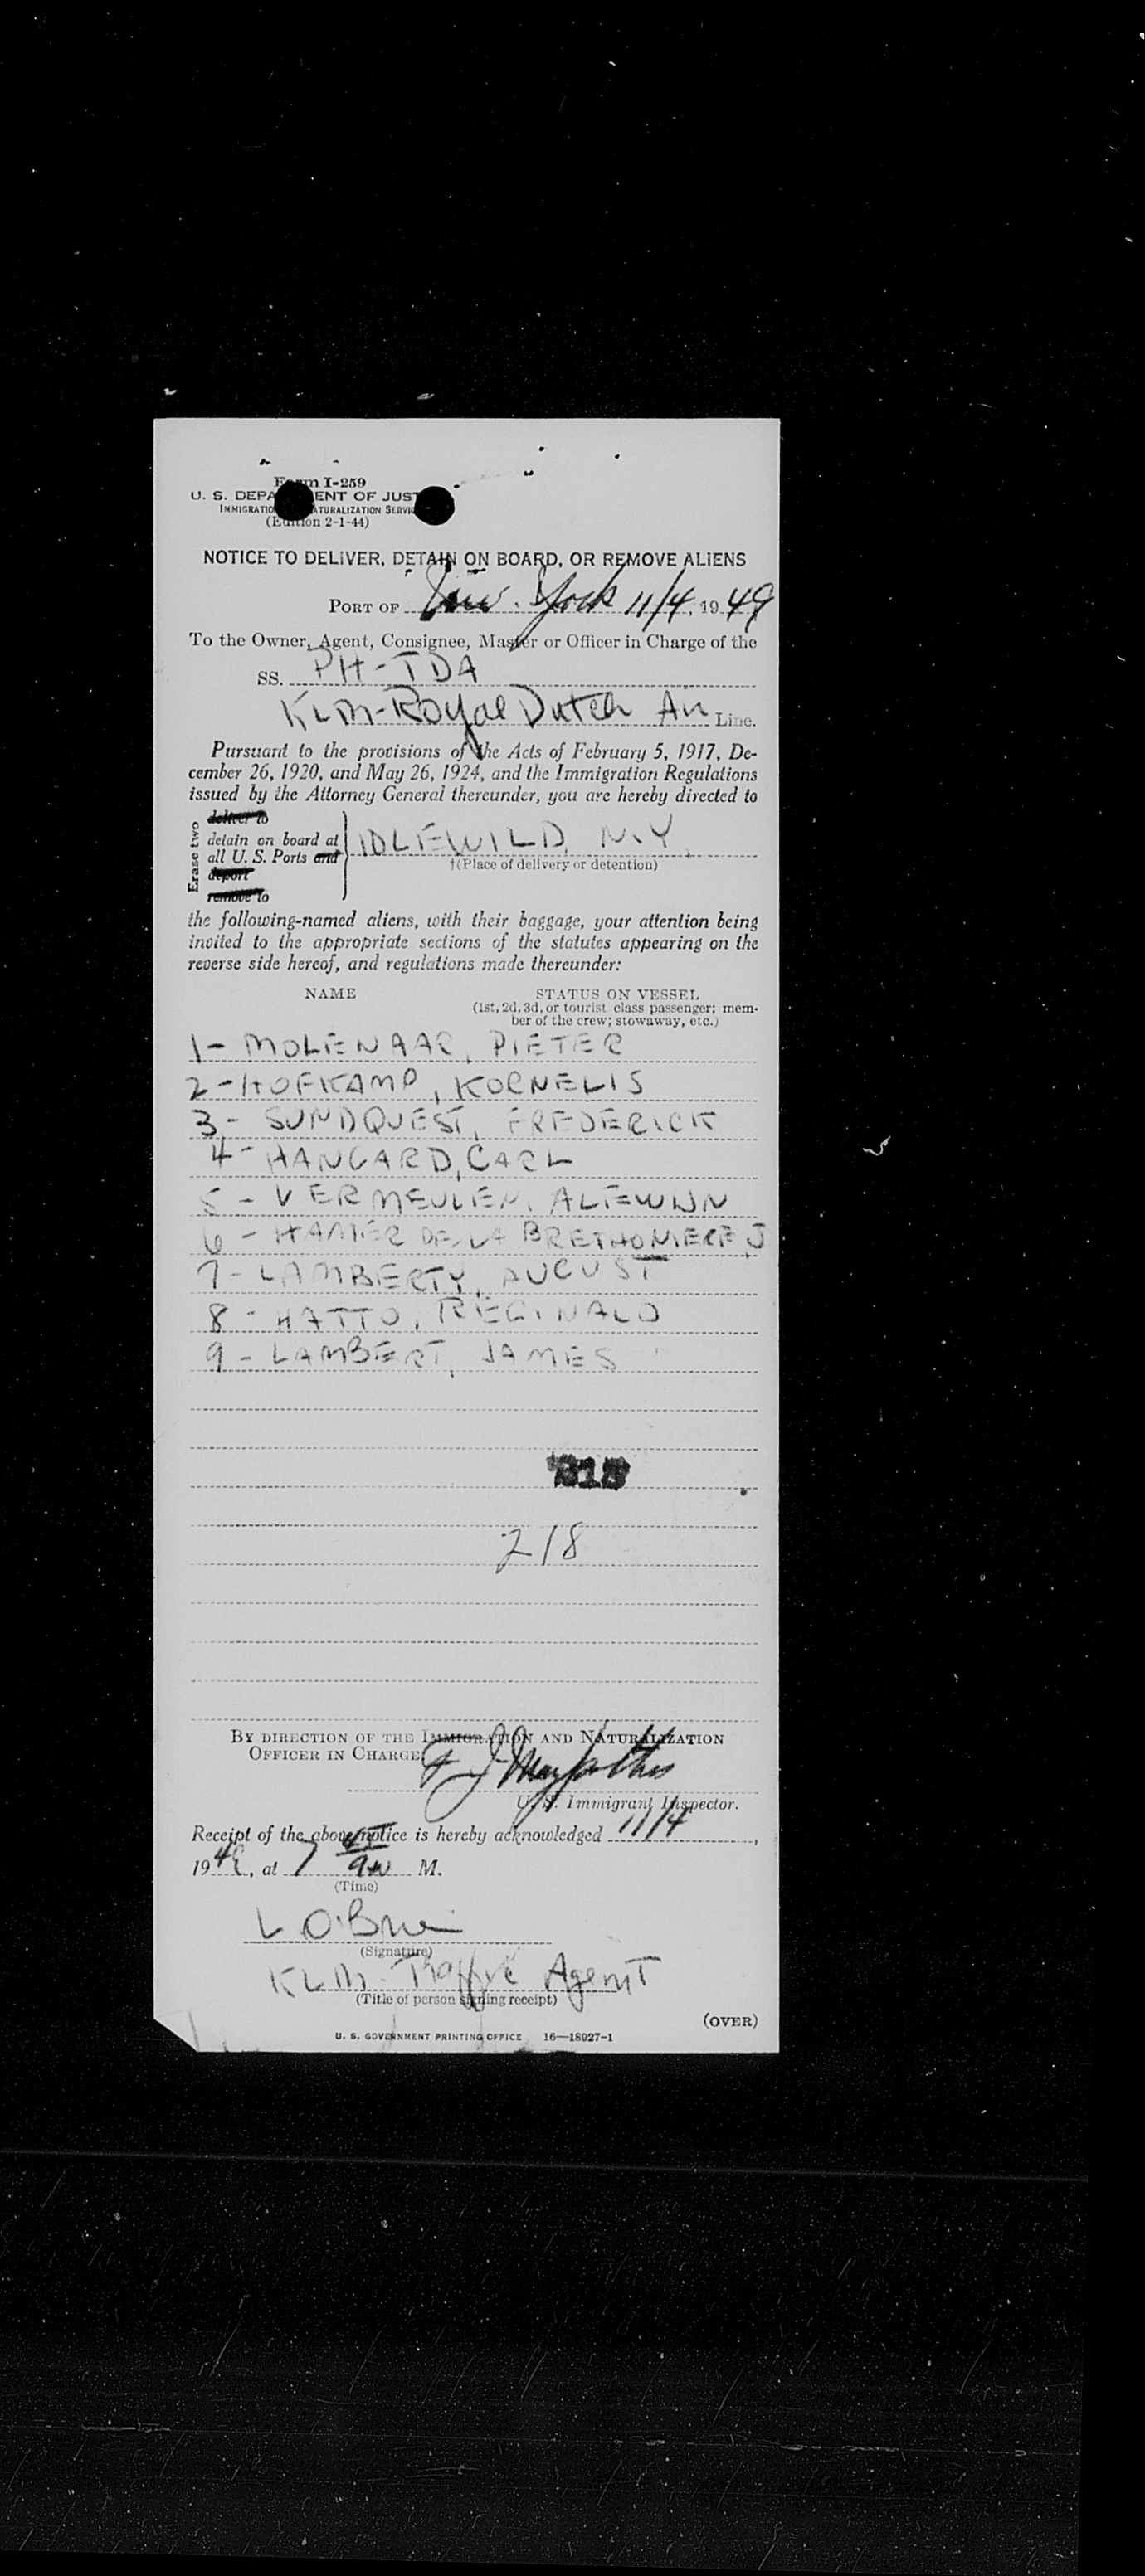 Form I-259
U. S. DEPARTMENT OF JUSTICE
IMMIGRATION NATURALIZATION SERVICE
(Edition 2-1-44)
NOTICE TO DELIVER, DETAIN ON BOARD, OR REMOVE ALIENS
PORT OF New York 11/4, 1949
To the Owner, Agent, Consignee, Master or Officer in Charge of the
SS. PH-TDA
KLM-Royal Dutch Air Line.
Pursuant to the provisions of the Acts of February 5, 1917, De-
cember 26, 1920, and May 26, 1924, and the Immigration Regulations
issued by the Attorney General thereunder, you are hereby directed to
Erase two
deliver to
detain on board at
all U. S. Ports and
deport
remove to
IDLEWILD, N.Y.
†(Place of delivery or detention)
the following-named aliens, with their baggage, your attention being
invited to the appropriate sections of the statutes appearing on the
reverse side hereof, and regulations made thereunder:
NAME STATUS ON VESSEL
(1st, 2d, 3d, or tourist class passenger; mem-
ber of the crew; stowaway, etc.)
1- MOLENAAR, PIETER
2-HOFKAMP, KORNELIS
3- SUNDQUEST, FREDERICK
4- HANGARD, CARL
5- VERMEULEN, ALEWIJN
6- HAMER DE LA BRETHONIERE J
7- LAMBERTY, AUGUST
8- HATTO, REGINALD
9- LAMBERT, JAMES
218
BY DIRECTION OF THE IMMIGRATION AND NATURALIZATION
OFFICER IN CHARGE
U. S. Immigrant Inspector.
Receipt of the above notice is hereby acknowledged 11/4,
1949, at 7 45 M.
(Time)
L O'Brien
(Signature)
KLM-Traffic Agent
(Title of person signing receipt)
(OVER)
U. S. GOVERNMENT PRINTING OFFICE 16—18927-1